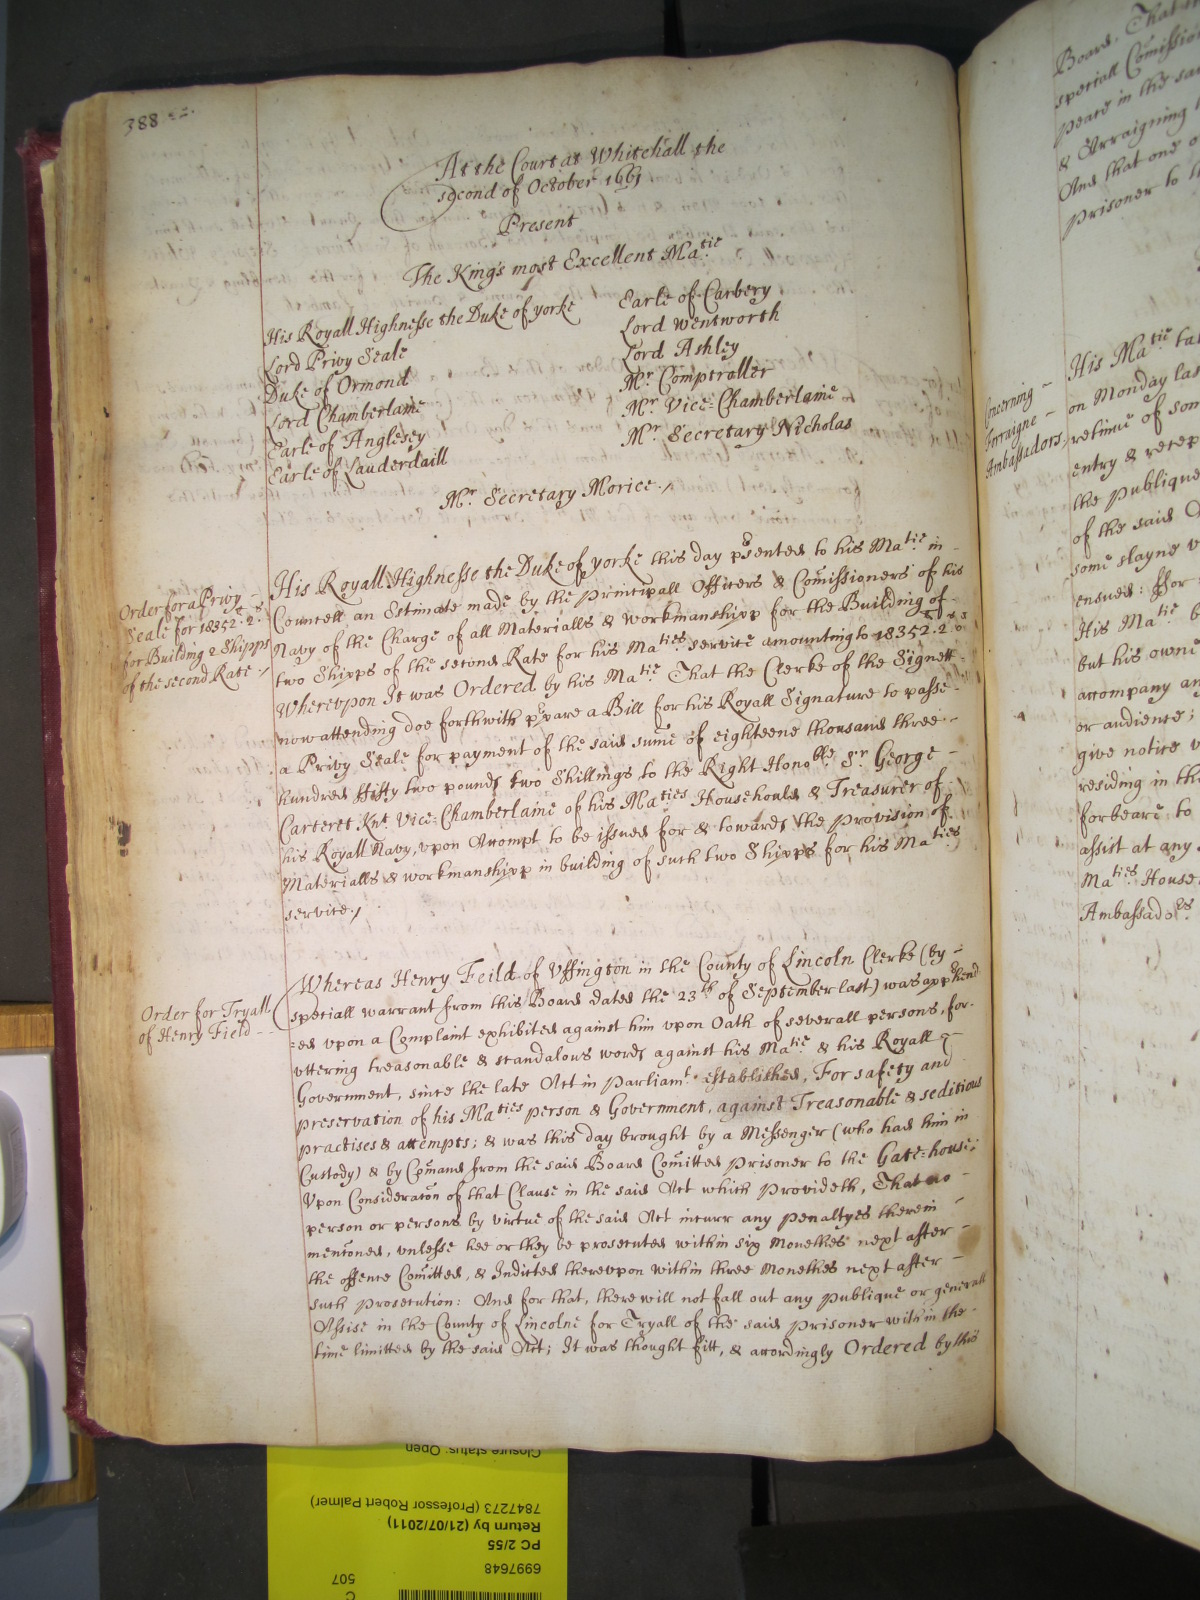 388
At the Court at Whitehall the
second of October 1661
Present
The King's most Excellent Ma.tie
His Royall Highnesse the Duke of yorke
Lord Privy Seale
Duke of Ormond
Lord Chamberlaine
Earle of Anglesey
Earle of Lauderdaill
Earle of Carbery
Lord wentworth
Lord Ashley
Mr. Comptroller
Mr. Vice-Chamberlaine
Mr. Secretary Nicholas
Mr. Secretary Morice./
Order for a Privy
Seale for 18352.2.s
for Building 2 Shipps
of the second Rate./
His Royall Highnesse the Duke of yorke this day psented to his Ma.tie in
Councell an Estimate made by the Principall Officers & Comissioners of his
Navy of the Charge of all Materialls & workmanshipp for the Building of
two Shipps of the second Rate for his Ma.ties service amounting to 18352.2.s
Wherevpon It was Ordered by his Ma.tie That the Clerke of the Signett
now attending doe forthwith ppare a Bill for his Royall Signature to passe
a Privy Seale for payment of the said sume of eighteene thousand three
hundred ffifty two pounds two Shillings to the Right Hono.ble Sr. George
Carteret Knt. Vice-Chamberlaine of his Ma.ties Househould & Treasurer of
his Royall Navy, vpon Accompt to be issued for & towards the Provision of
Materialls & workmanshipp in building of such two Shipps for his Ma.ties
service./
Order for Tryall
of Henry Field
Whereas Henry Feild of Vffington in the County of Lincoln Clerke (by
speciall warrant from this Board dated the 23th of September last) was apphend
=ed vpon a Complaint exhibited against him vpon Oath of severall persons, for
vttering treasonable & scandalous words against his Ma.tie & his Royall
Government, since the late Act in Parliamt. established, For safety and
preservation of his Ma.ties person & Government, against Treasonable & seditious
practises & attempts; & was this day brought by a Messenger (who had him in
Custody) & by Comand from the said Board Comitted prisoner to the Gate-house;
Vpon Consideracon of that Clause in the said Act which Provideth, That no
person or persons by virtue of the said Act incurr any penaltyes therein
menconed, vnlesse hee or they be prosecuted within six Monethes next after
the offence Comitted, & Indicted therevpon within three Monethes next after
such prosecution: And for that, there will not fall out any Publique or generall
Assise in the County of Lincolne for Tryall of the said prisoner within the
time limitted by the said Act; It was thought fitt, & accordingly Ordered by this
Board, That
speciall Comission
peace in the sa
& Arraigning
And that one o
prisoner to
Concerning
fforraigne
Ambassadors
His Ma.tie
on Monday las
retinue of som
entry & recep
the publique
of the said
some slayne
ensued: ffor
His Ma.tie
but his owne
accompany an
or audience;
give notice
residing in the
forbeare to
assist at any
Ma.ties House
Ambassado.rs
Closure status: Open
7847273 (Professor Robert Palmer)
Return by (21/07/2011)
PC 2/55
6997648
507
C